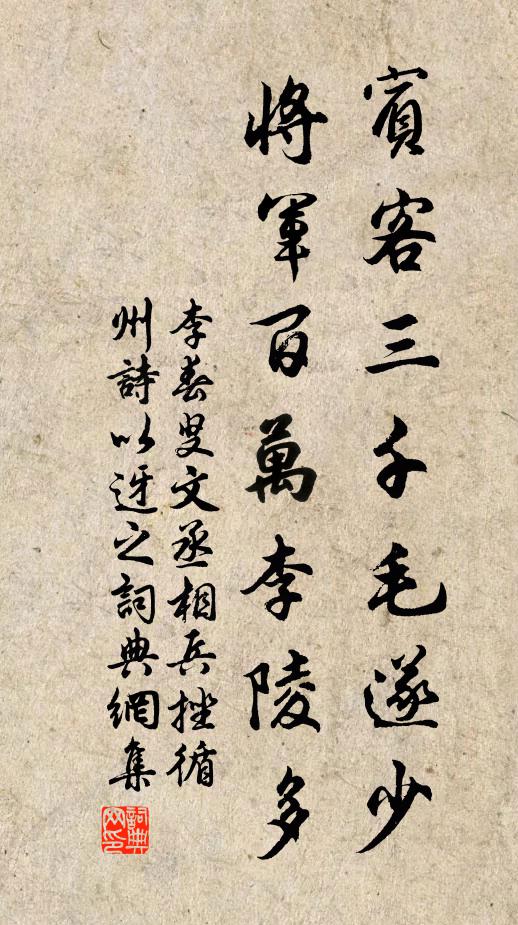 賓客三千毛遂少
將軍百萬李陵多
李春叟文丞相兵挫循
州詩以迓之詞典網集
詞典网印